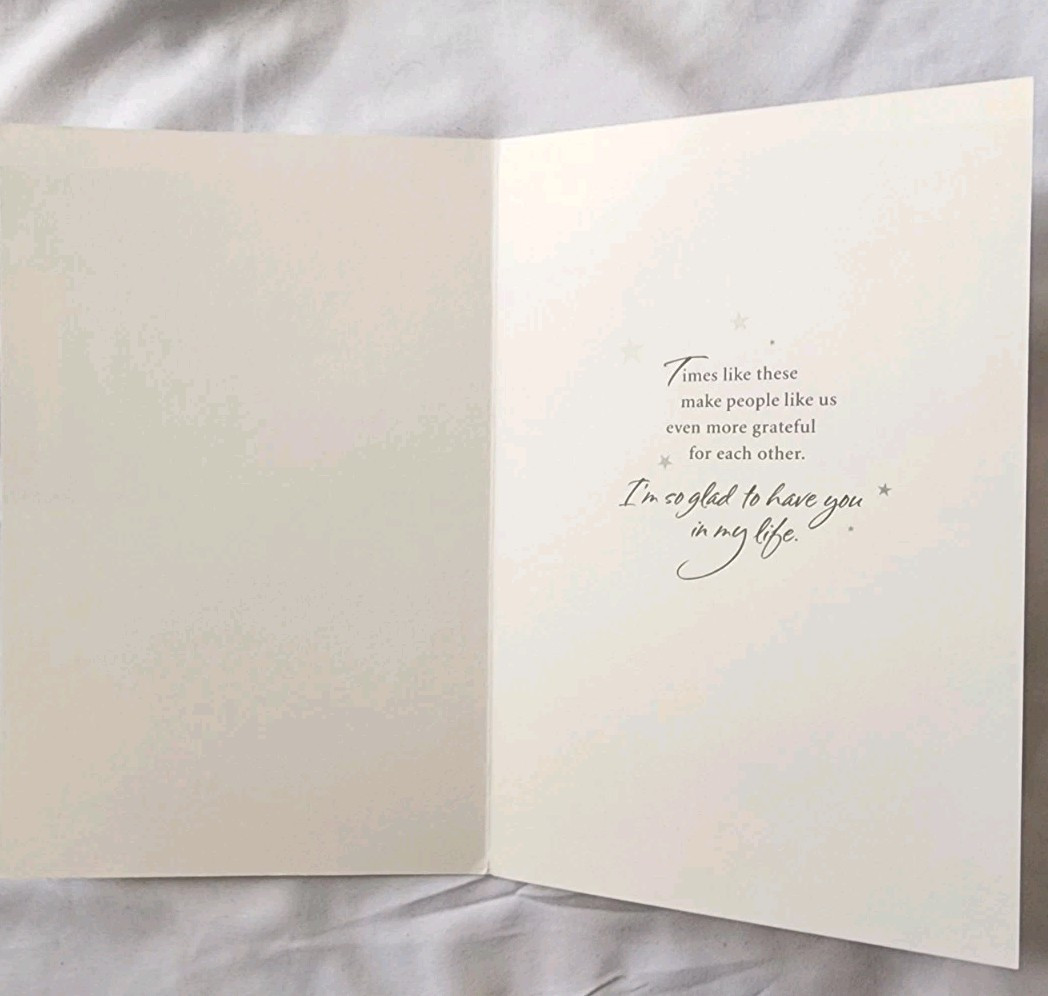 Times like these
make people like us
even more grateful
for each other.
I'm so glad to have you
in my life.